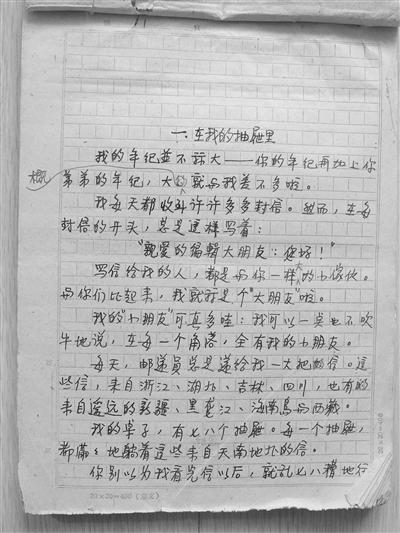 一、在我的抽屉里
我的年纪并不算大——你的年纪再加上你
弟弟的年纪，大概就与我差不多啦。
我每天都收到许许多多封信。然而，在每
封信的开头，总是这样写着：
“亲爱的编辑大朋友：您好！”
写信给我的人，都是与你一样大的小傢伙。
与你们比起来，我就算是个“大朋友”啦。
我的“小朋友”可真多哇：我可以一点也不吹
牛地说，在每一个角落，全有我的小朋友。
每天，邮递员总是递给我一大把的信。这
些信，来自浙江、湖北、吉林、四川，也有的
来自遥远的新疆、黑龙江、海南岛与西藏。
我的桌子，有七八个抽屉。每一个抽屉，
都满满地躺着这些来自天南地北的信。
你别以为我看完信以后，就乱七八糟地往
20×20=400